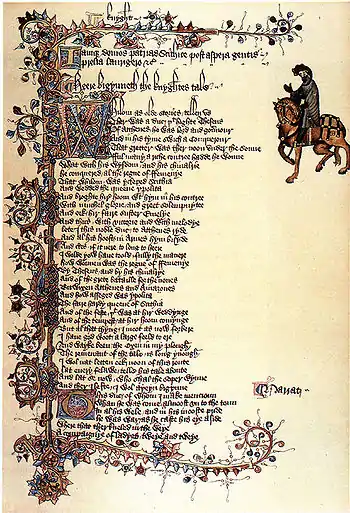 Knyght
Iamque domos patrias Scithice post aspera gentis
Prelia laurigero &c
Heere bigynneth the knyghtes tale
Whilom as olde stories tellen vs
Ther was a duc þt highte Theseus
Of Atthenes he was lord and gouernour
And in his tyme swich a Conquerour
That gretter was ther noon vnder the sonne
Ful many a riche contree hadde he wonne
What with his wysdom and his chiualrie
He conquered al the regne of ffemenye
That whilom was ycleped Scithia
And wedded the queene ypolita
And broghte hir hoom wt hym in his contree
With muchel glorie and greet solempnytee
And eek hir faire suster Emelye
And thus with victorie and with melodye
Lete I this noble duc to Atthenes ryde
And al his hoost in Armes hym bisyde
And certes if it nere to long to heere
I wolde yow haue toold fully the manere
How wonnen was the regne of ffemenye
By Theseus and by his chiualrye
And of the grete bataille for the nones
Bitwixen Atthenes and Amazones
And how asseged was ypolita
The faire hardy queene of Scithia
And of the feste þt was at hir weddynge
And of the tempest at hir hoom comynge
But al that thyng I moot as now forbere
I haue god woot a large feeld to ere
And wayke been the oxen in my plough
The remenant of the tale is long ynough
I wol nat letten eek noon of this route
Lat euery felawe telle his tale aboute
And lat se now who shal the soper wynne
And ther I lefte I wol ayeyn bigynne
This duc of whom I make mencioun
Whan he was come almoost vn to the toun
In al his wele and in his mooste pride
He was war as he caste his eye aside
Where that ther kneled in the weye
A compaignye of ladyes tweye and tweye
Narrat